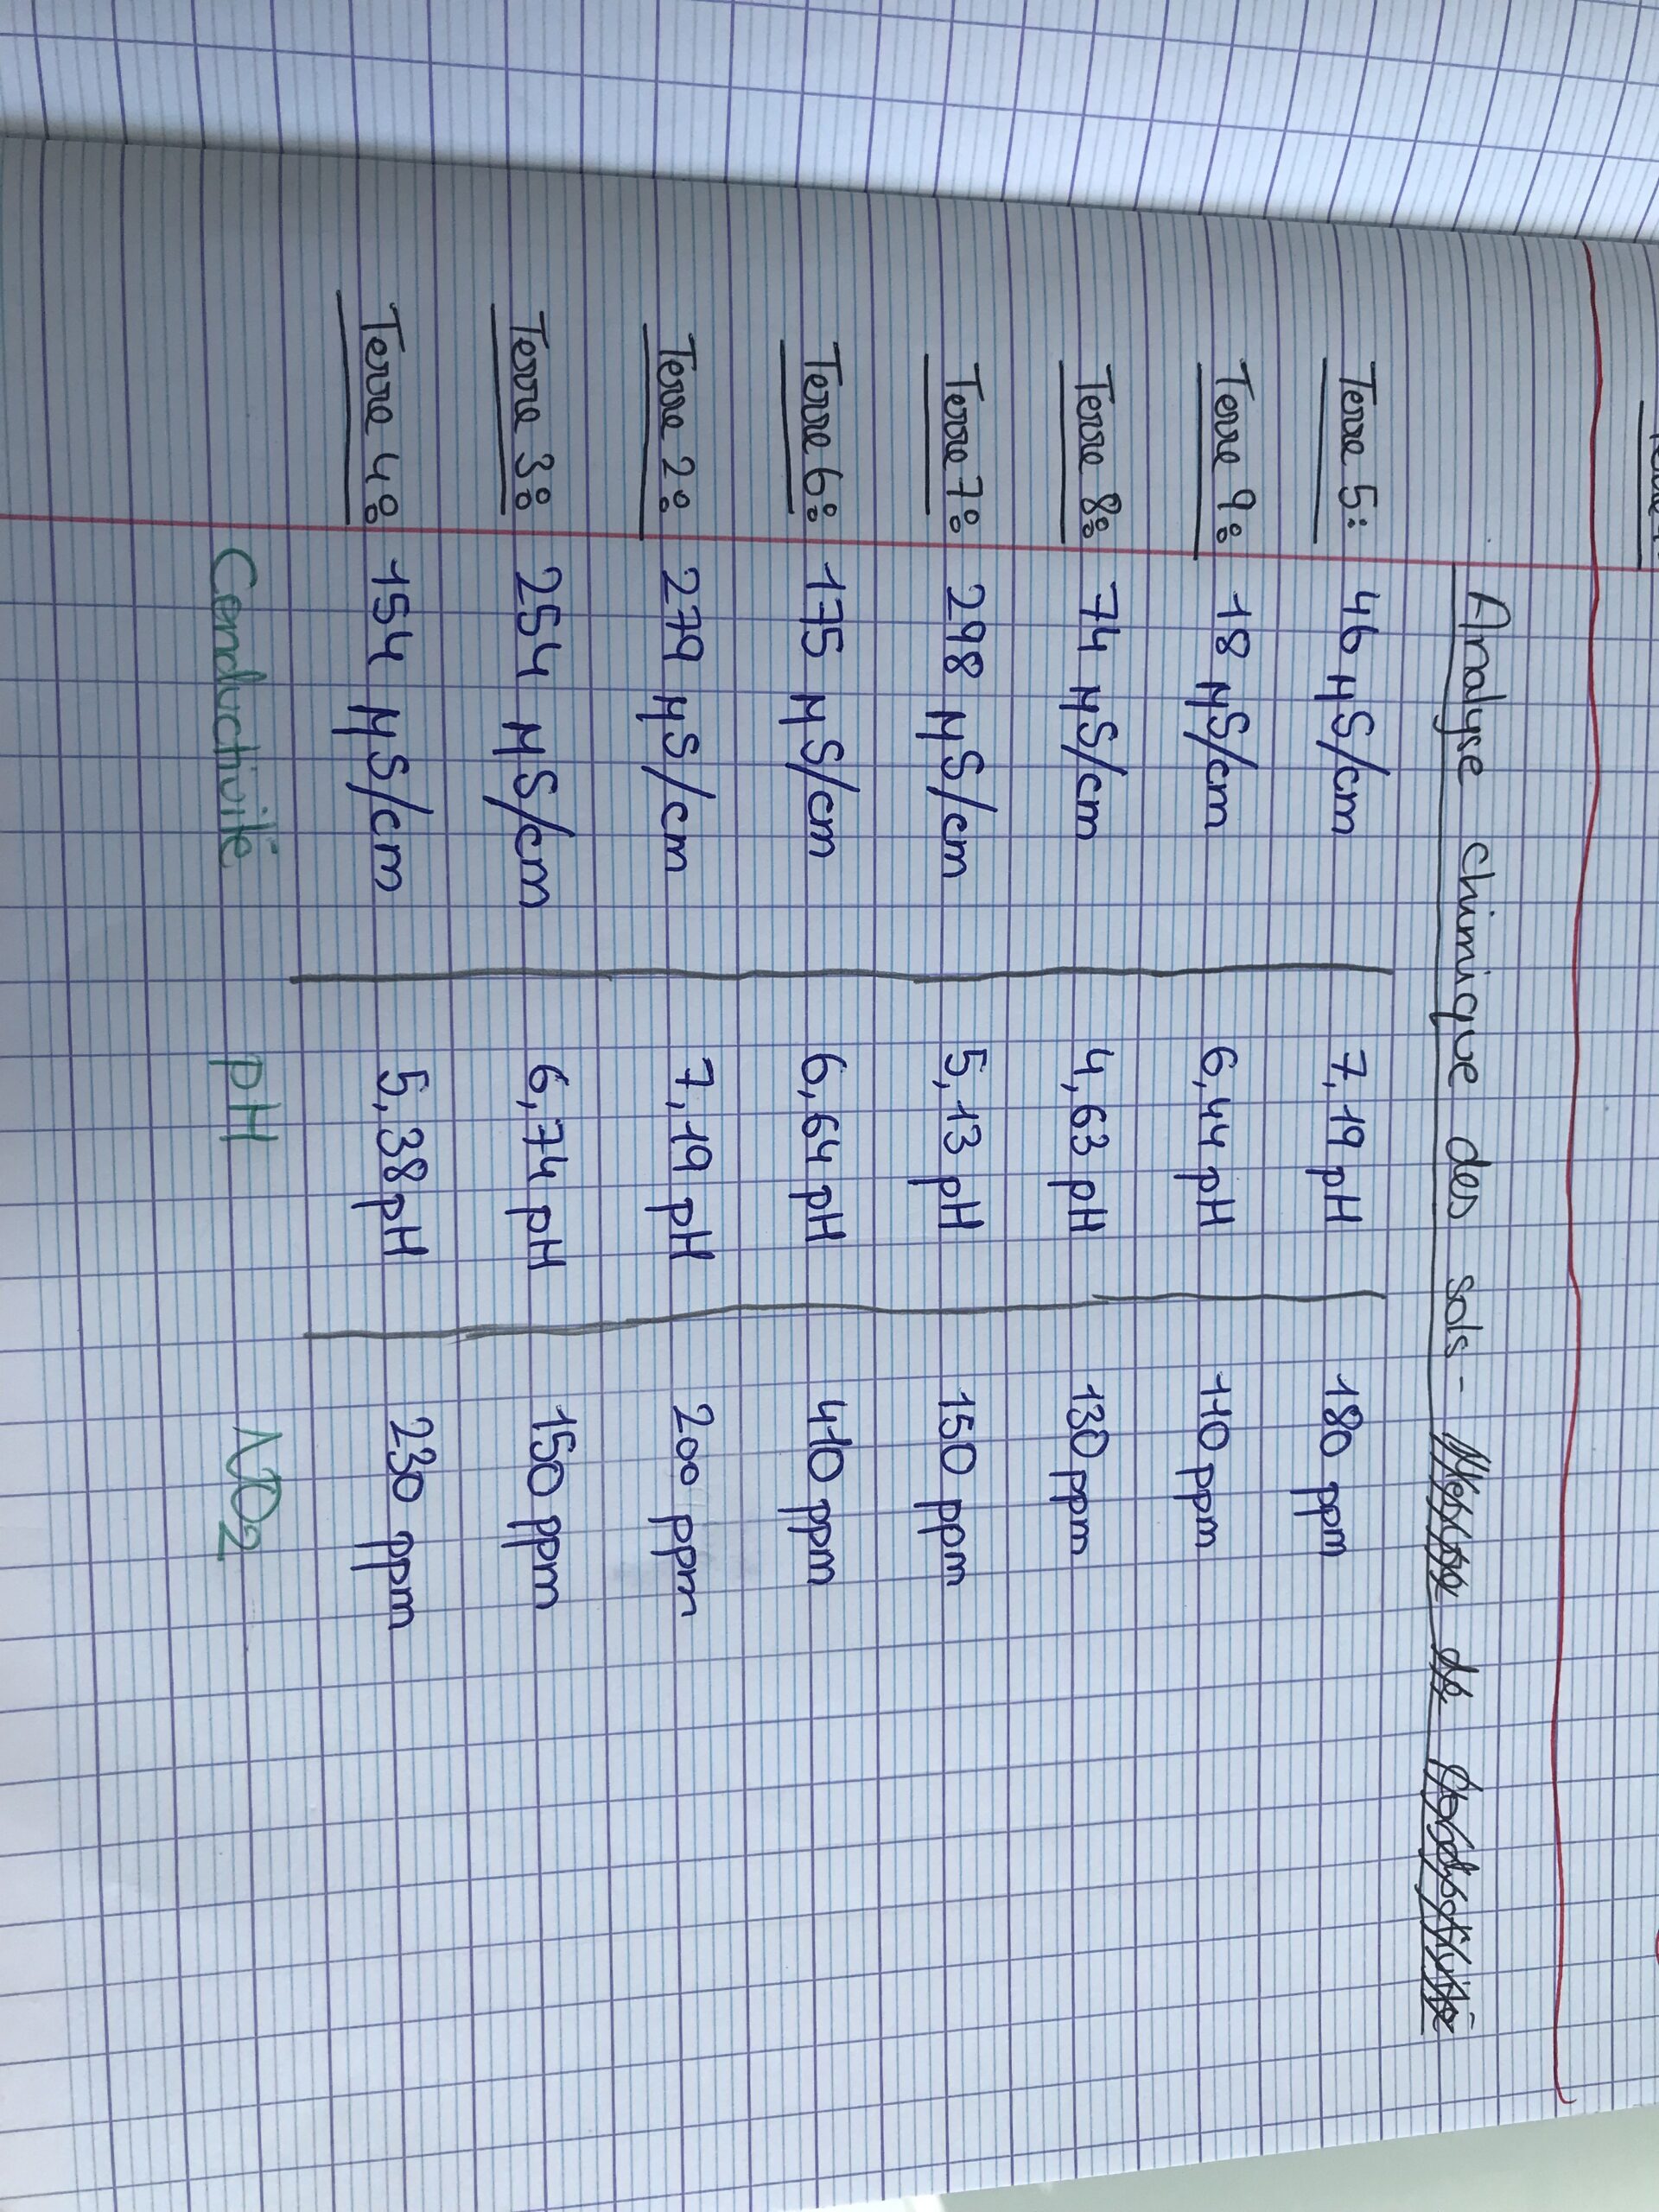 Analyse chimique des sols -
Terre 5: 46 µS/cm 7,19 pH 180 ppm
Terre 9: 18 µS/cm 6,44 pH 110 ppm
Terre 8: 74 µS/cm 4,63 pH 130 ppm
Terre 7: 298 µS/cm 5,13 pH 150 ppm
Terre 6: 175 µS/cm 6,64 pH 410 ppm
Terre 2: 279 µS/cm 7,19 pH 200 ppm
Terre 3: 254 µS/cm 6,74 pH 150 ppm
Terre 4: 154 µS/cm 5,38 pH 230 ppm
Conductivité pH NO2